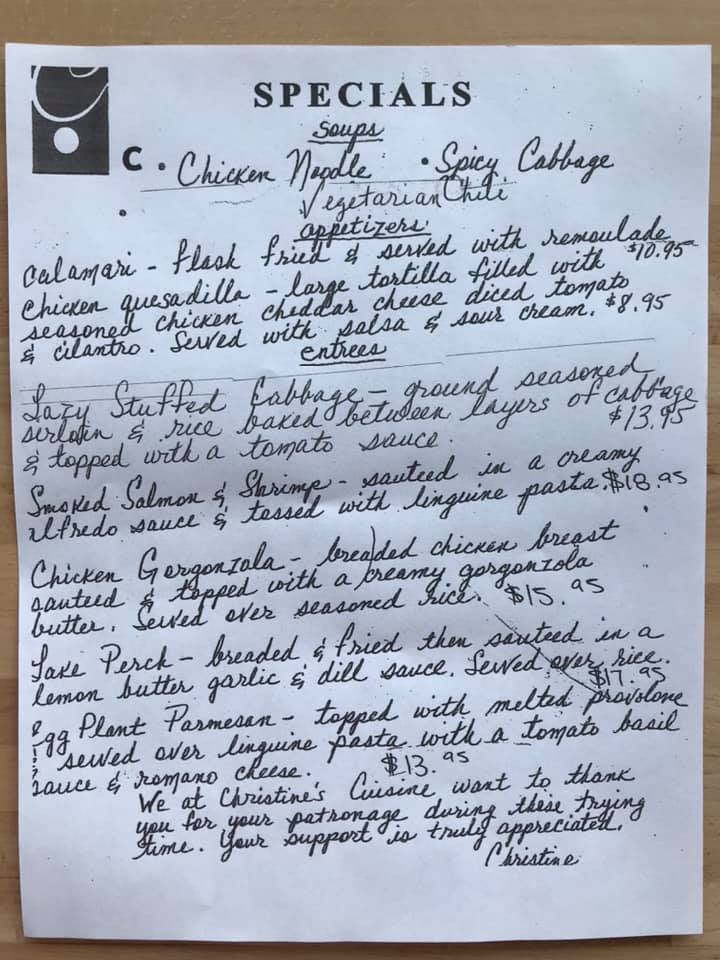 SPECIALS
Soups
C • Chicken Noodle • Spicy Cabbage
Vegetarian Chili
appetizers
Calamari - flash fried & served with remoulade $10.95
Chicken quesadilla - large tortilla filled with
seasoned chicken cheddar cheese diced tomato
& cilantro. Served with salsa & sour cream. $8.95
entrees
Lazy Stuffed Cabbage - ground seasoned
sirloin & rice baked between layers of cabbage
& topped with a tomato sauce. $13.95
Smoked Salmon & Shrimp - sauteed in a creamy
alfredo sauce & tossed with linguine pasta. $18.95
Chicken Gorgonzola - breaded chicken breast
sauteed & topped with a creamy gorgonzola
butter. Served over seasoned rice. $15.95
Lake Perch - breaded & fried then sauteed in a
lemon butter garlic & dill sauce. Served over rice.
$17.95
Egg Plant Parmesan - topped with melted provolone
& served over linguine pasta with a tomato basil
sauce & romano cheese. $13.95
We at Christine's Cuisine want to thank
you for your patronage during these trying
time. Your support is truly appreciated.
Christine